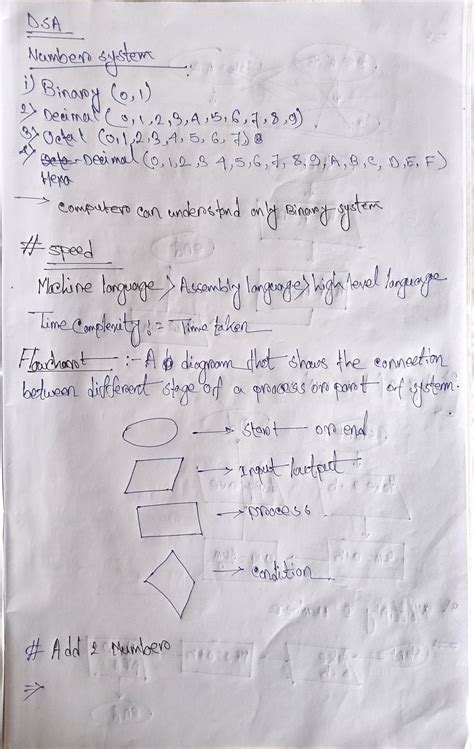 DSA
Number system
1) Binary (0, 1)
2) Decimal (0, 1, 2, 3, 4, 5, 6, 7, 8, 9)
3) Octal (0, 1, 2, 3, 4, 5, 6, 7)
4) Decimal (0, 1, 2, 3 4, 5, 6, 7, 8, 9, A, B, C, D, E, F)
Hexa
→ computers can understand only Binary system
# speed
Machine language > Assembly language > high level language
Time Complexity := Time taken
Flowchart :- A diagram that shows the connection
between different stage of a process or part of system.
→ start or end
→ Input/output
→ process
→ condition
# Add 2 Numbers
⇒